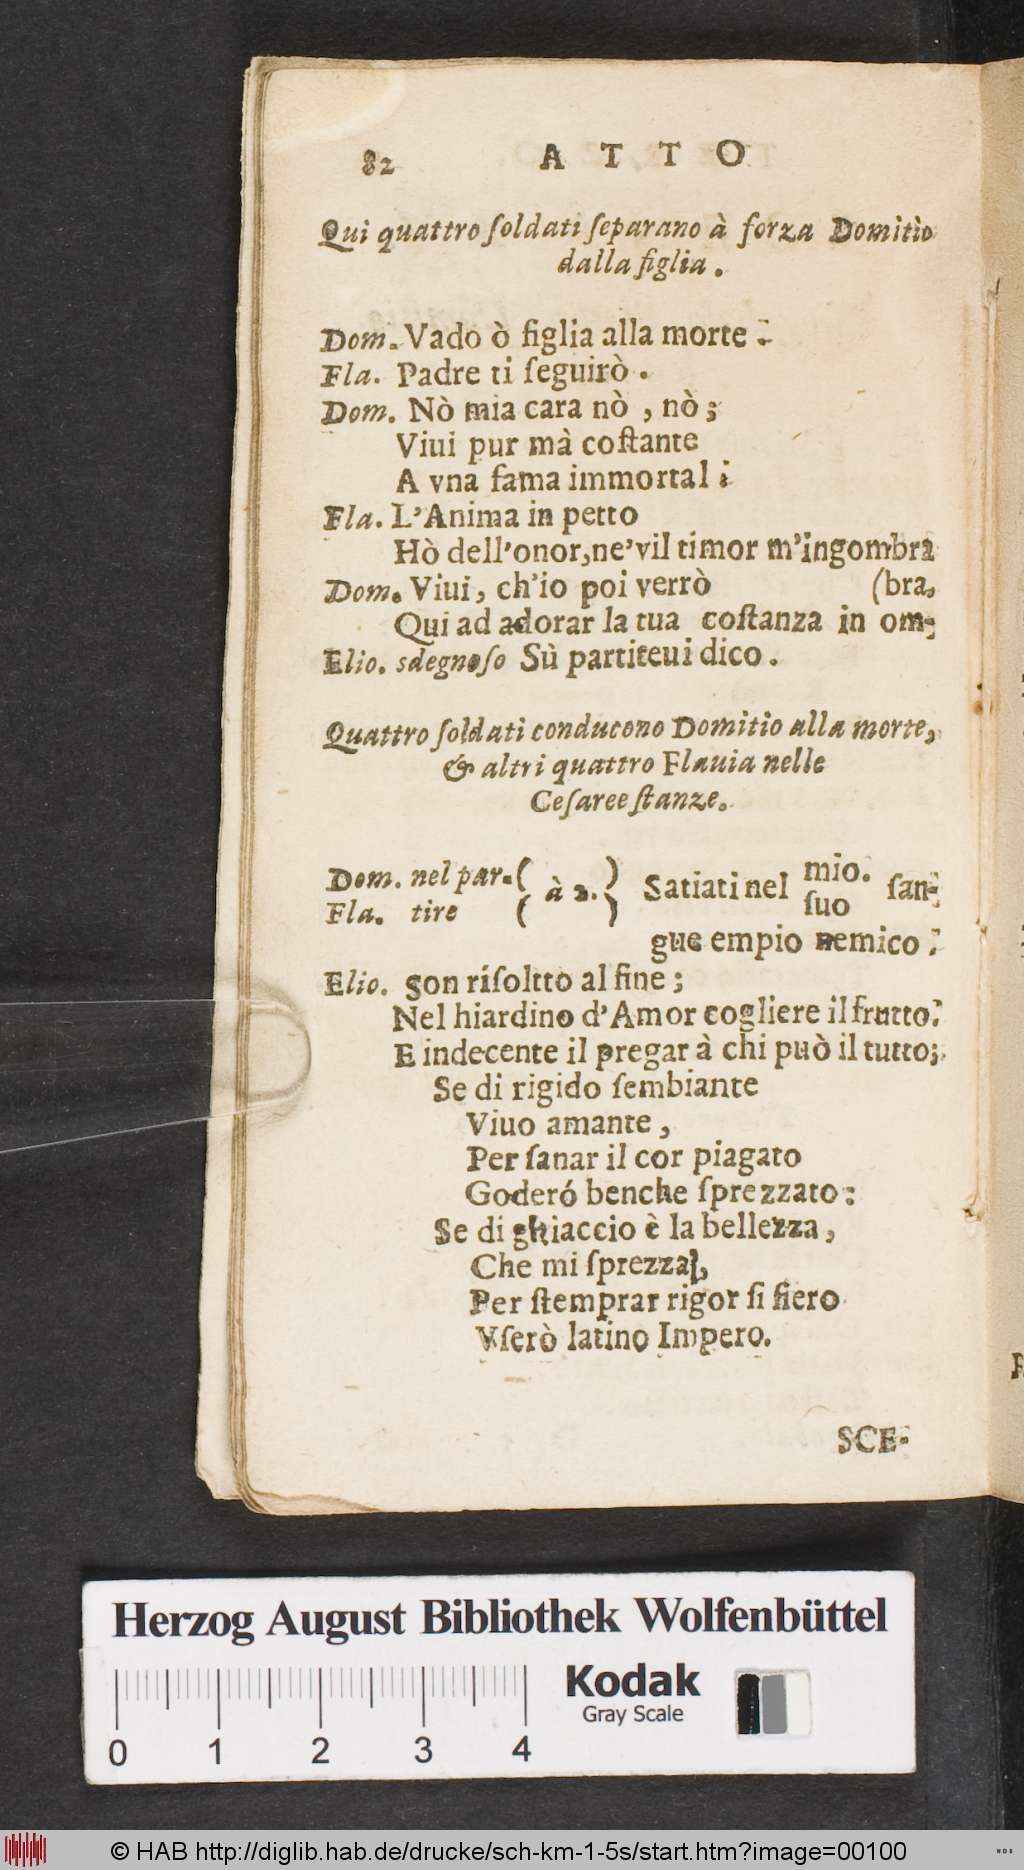 82 ATTO
Qui quattro ſoldati ſeparano à forza Domitio
dalla figlia.
Dom. Vado ò figlia alla morte.
Fla. Padre ti ſeguirò.
Dom. Nò mia cara nò, nò;
Viui pur mà coſtante
A vna fama immortal;
Fla. L'Anima in petto
Hò dell'onor, ne' vil timor m'ingombra
Dom. Viui, ch'io poi verrò (bra.
Qui ad adorar la tua coſtanza in om-
Elio. sdegnoſo Sù partiteui dico.
Quattro ſoldati conducono Domitio alla morte,
& altri quattro Flauia nelle
Ceſaree ſtanze.
Dom. nel par- ( à 2. ) Satiati nel mio. ſan-
Fla. tire ( ) ſuo
gue empio nemico.
Elio. Son riſoltto al fine;
Nel hiardino d'Amor cogliere il frutto.
E indecente il pregar à chi può il tutto;
Se di rigido ſembiante
Viuo amante,
Per ſanar il cor piagato
Goderó benche ſprezzato:
Se di ghiaccio è la bellezza,
Che mi ſprezza,
Per ſtemprar rigor ſi fiero
Vſerò latino Impero.
SCE-
Herzog August Bibliothek Wolfenbüttel
Kodak
Gray Scale
0 1 2 3 4
© HAB http://diglib.hab.de/drucke/sch-km-1-5s/start.htm?image=00100